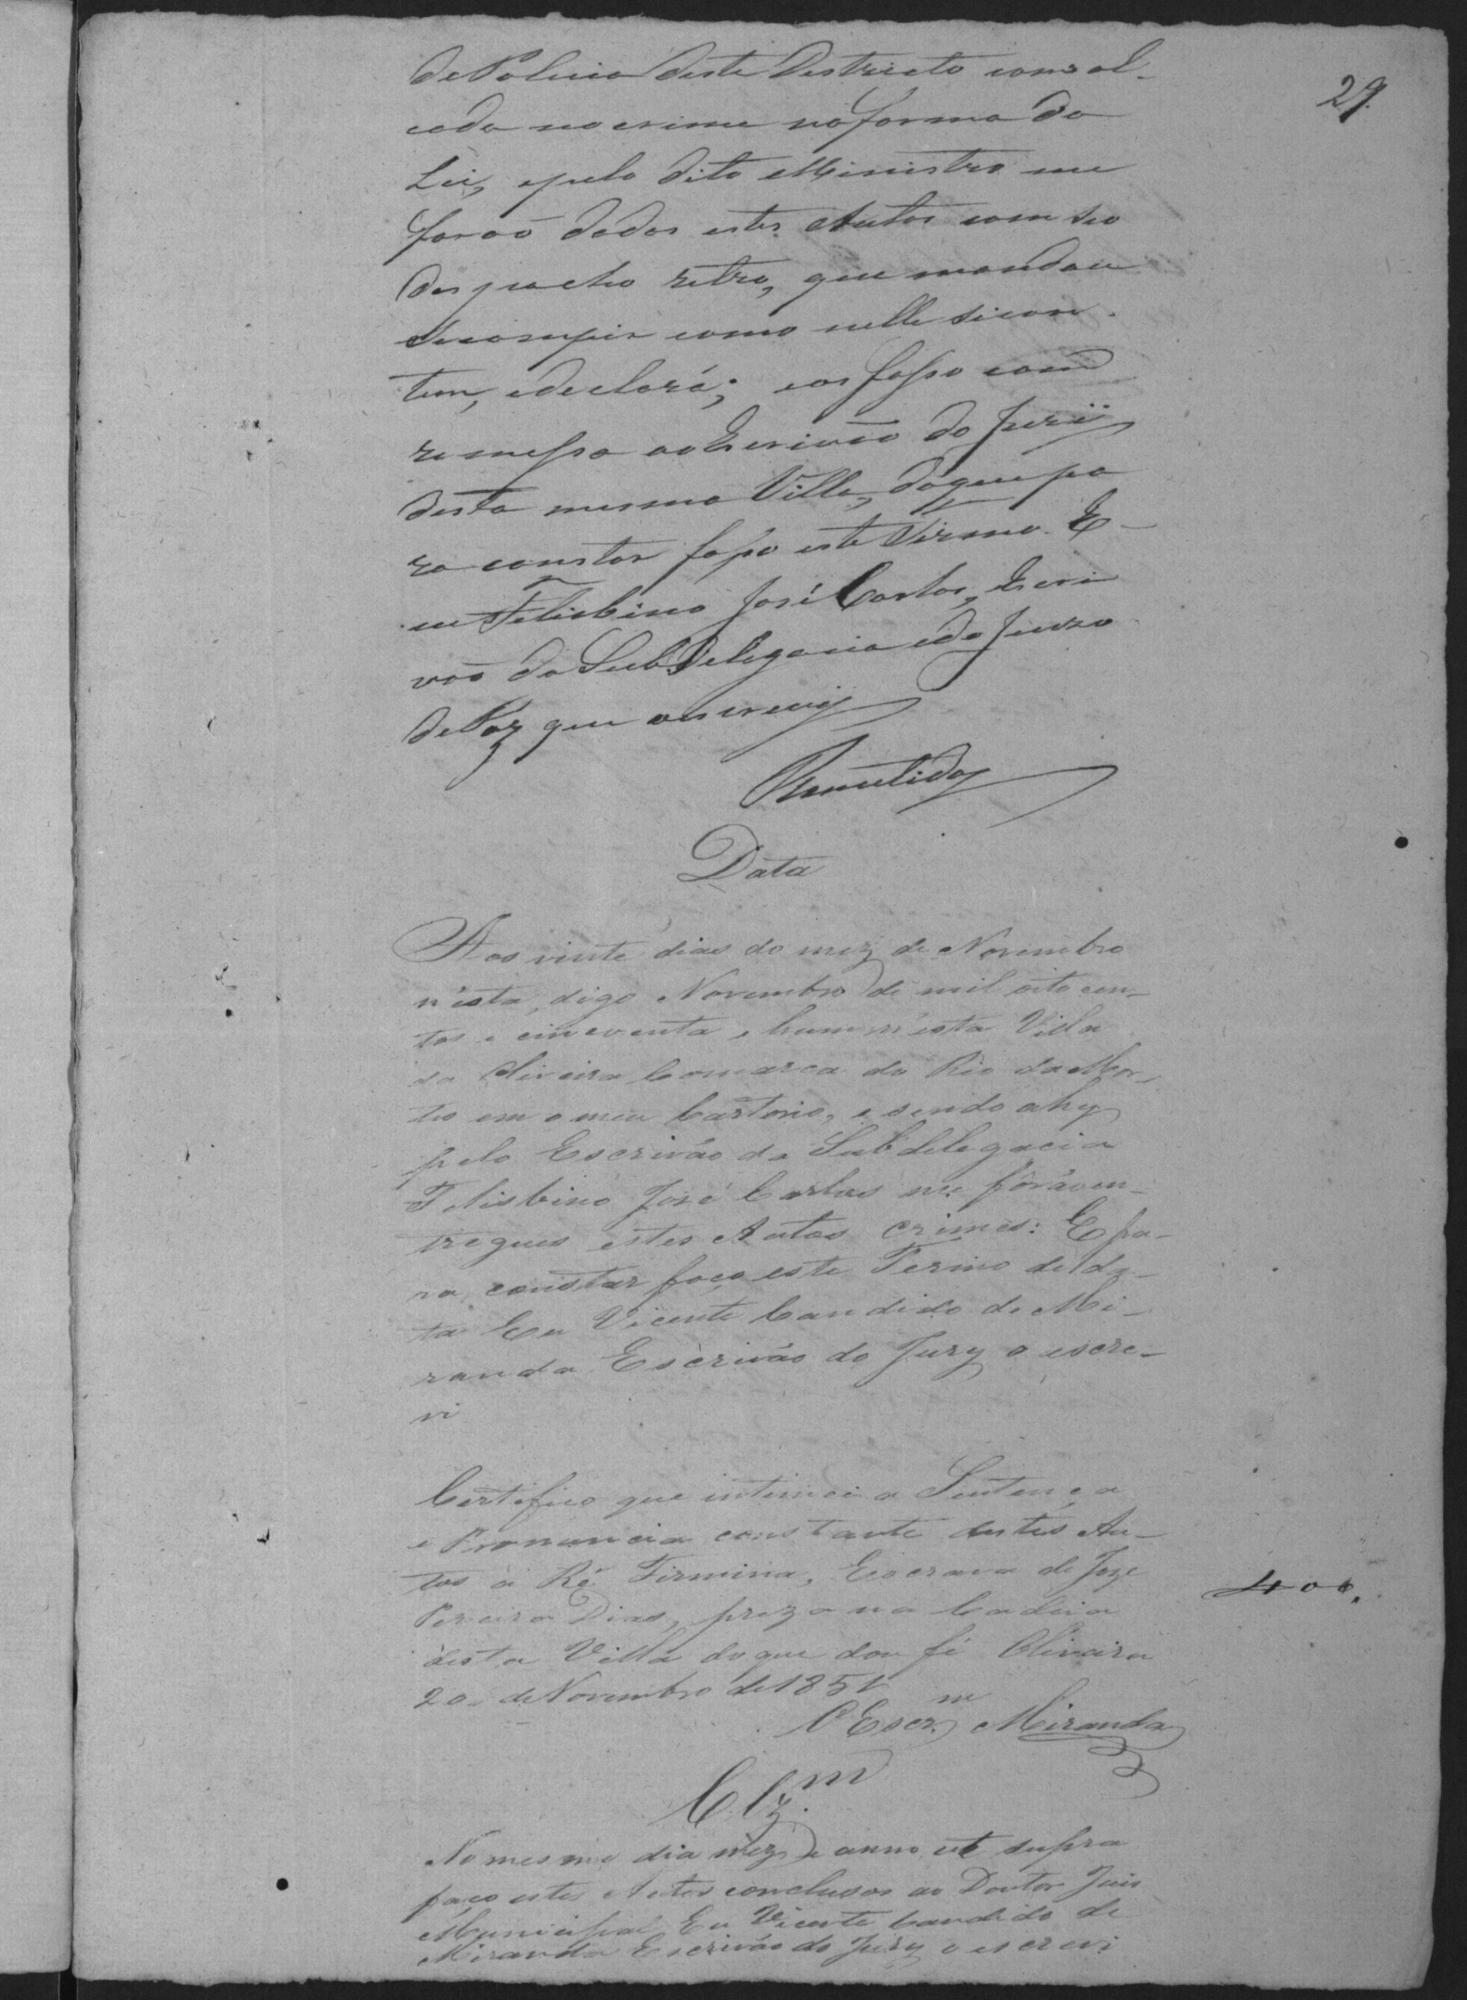 29.
de Policia deste Destricto com al-
cada no crime na forma da
Lei, e pelo dito Ministro me
forão dados estes Autos com seo
despacho retro, que mandou
se comprir como nelle se con-
tem, e declará; e os fasso com
remessa ao Escrivão do Jurÿ
desta mesma Villa, do que pa
ra constar fasso este Termo. E
eu Felisbino José Carlos, Escri
vão da SubDelegacia e do Juizo
de Paz que o escrevy
Remetidos
Data
Aos vinte dias do mez de Novembro
n'esta, digo Novembro de mil oito cen-
tos e cincoenta e hum n'esta Villa
da Oliveira Comarca do Rio das Mor-
tes em o meu Cartorio, e sendo ahy
pelo Escrivão da Subdelegacia
Felisbino José Carlos me forão en-
tregues estes Autos crimes: E pa-
ra constar faço este Termo de da-
ta Eu Vicente Candido de Mi-
randa Escrivão do Jury o escre-
vi
Certifico que intimei a Sentença
e Pronuncia constante destes Au-
tos a Ré Firmina, Escrava de Joze
Pereira Dias, preza na Cadeia
desta Villa do que dou fé Oliveira
20 de Novembro de 1851
400.
O Escr.m Miranda
Clz.m
No mesmo dia mez e anno ut supra
faço estes Autos conclusos ao Doutor Juis
Municipal Eu Vicente Candido de
Miranda Escrivão do Jury o escrevi